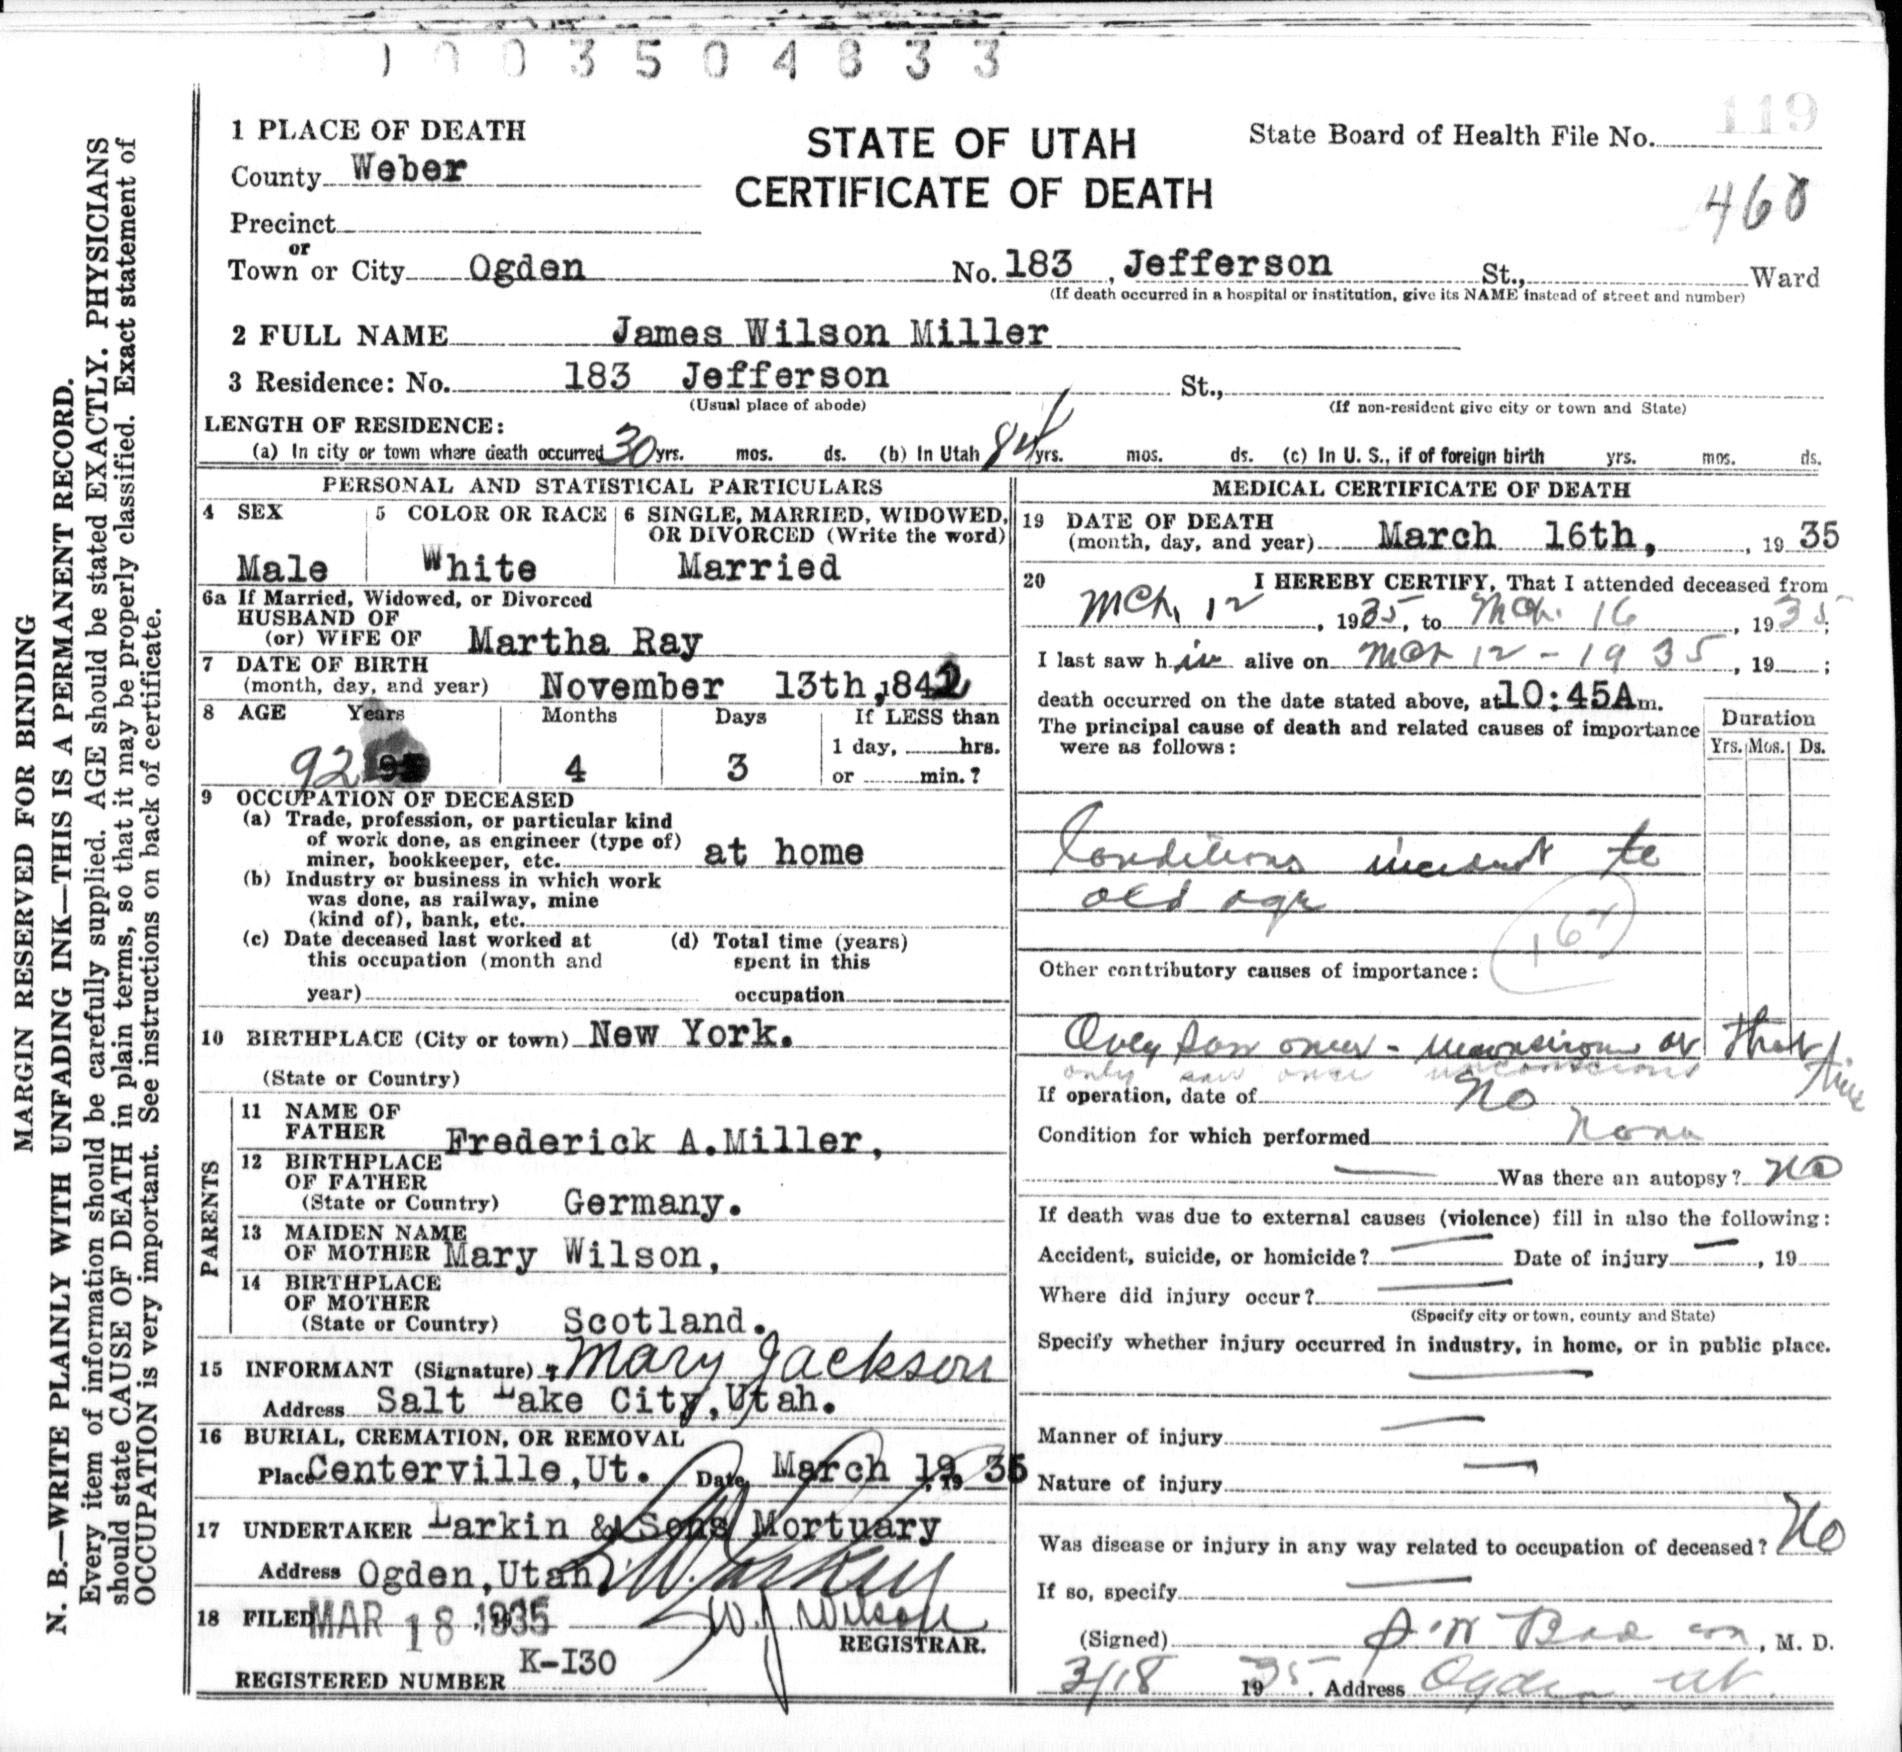 1003504833
119
1 PLACE OF DEATH
STATE OF UTAH
CERTIFICATE OF DEATH
State Board of Health File No.
468
County Weber
Precinct
or
Town or City Ogden No. 183, Jefferson St., Ward
(If death occurred in a hospital or institution, give its NAME instead of street and number)
2 FULL NAME James Wilson Miller
3 Residence: No. 183 Jefferson St.,
(Usual place of abode) (If non-resident give city or town and State)
LENGTH OF RESIDENCE:
(a) In city or town where death occurred 30 yrs. mos. ds. (b) In Utah 84 yrs. mos. ds. (c) In U. S., if of foreign birth yrs. mos. ds.
PERSONAL AND STATISTICAL PARTICULARS
4 SEX
Male
5 COLOR OR RACE
White
6 SINGLE, MARRIED, WIDOWED,
OR DIVORCED (Write the word)
Married
6a If Married, Widowed, or Divorced
HUSBAND OF
(or) WIFE OF Martha Ray
7 DATE OF BIRTH
(month, day, and year) November 13th, 1842
8 AGE Years Months Days If LESS than
1 day, hrs.
92 4 3
or min.?
9 OCCUPATION OF DECEASED
(a) Trade, profession, or particular kind
of work done, as engineer (type of)
miner, bookkeeper, etc. at home
(b) Industry or business in which work
was done, as railway, mine
(kind of), bank, etc.
(c) Date deceased last worked at
this occupation (month and
year)
(d) Total time (years)
spent in this
occupation
10 BIRTHPLACE (City or town) New York.
(State or Country)
PARENTS
11 NAME OF
FATHER Frederick A. Miller,
12 BIRTHPLACE
OF FATHER
(State or Country) Germany.
13 MAIDEN NAME
OF MOTHER Mary Wilson,
14 BIRTHPLACE
OF MOTHER
(State or Country) Scotland.
15 INFORMANT (Signature) Mary Jackson
Address Salt Lake City, Utah.
16 BURIAL, CREMATION, OR REMOVAL
Place Centerville, Ut. Date March 19, 19 35
17 UNDERTAKER Larkin & Sons Mortuary
Address Ogden, Utah
18 FILED MAR 18 1935 W. J. Wilson
REGISTRAR.
REGISTERED NUMBER K-I30
MEDICAL CERTIFICATE OF DEATH
19 DATE OF DEATH
(month, day, and year) March 16th, , 19 35
20 I HEREBY CERTIFY, That I attended deceased from
Mch. 12, 1935, to Mch. 16, 1935;
I last saw him alive on Mch 12 - 1935, 19 ;
death occurred on the date stated above, at 10:45A m.
The principal cause of death and related causes of importance
were as follows:
Duration
Yrs. Mos. Ds.
Conditions incident to
old age
Other contributory causes of importance:
Only saw once - unconscious at that
only saw once unconscious time
If operation, date of No
Condition for which performed None
Was there an autopsy? No
If death was due to external causes (violence) fill in also the following:
Accident, suicide, or homicide? Date of injury , 19
Where did injury occur?
(Specify city or town, county and State)
Specify whether injury occurred in industry, in home, or in public place.
Manner of injury
Nature of injury
Was disease or injury in any way related to occupation of deceased? No
If so, specify
(Signed) , M. D.
3/18 1935. Address Ogden Ut.
MARGIN RESERVED FOR BINDING
N. B.—WRITE PLAINLY WITH UNFADING INK—THIS IS A PERMANENT RECORD.
Every item of information should be carefully supplied. AGE should be stated EXACTLY. PHYSICIANS
should state CAUSE OF DEATH in plain terms, so that it may be properly classified. Exact statement of
OCCUPATION is very important. See instructions on back of certificate.